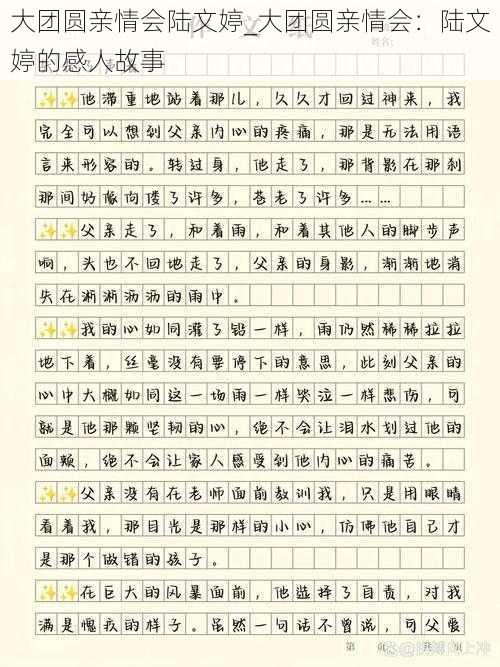 大团圆亲情会陆文婷_大团圆亲情会：陆文
婷的感人故事
姓名：
✨✨他滞重地站着那儿，久久才回过神来，我
完全可以想到父亲内心的疼痛，那是无法用语
言来形容的。转过身，他走了，那背影在那刹
那间好像佝偻了许多，苍老了许多……
✨✨父亲走了，和着雨，和着其他人的脚步声
响，头也不回地走了，父亲的身影，渐渐地消
失在淅淅沥沥的雨中。
✨✨我的心如同灌了铅一样，雨仍然稀稀拉拉
地下着，丝毫没有要停下的意思，此刻父亲的
心中大概如同这一场雨一样哭泣一样悲伤，可
就是他那颗坚韧的心，绝不会让泪水划过他的
面颊，绝不会让家人感受到他内心的痛苦。
✨✨父亲没有在老师面前教训我，只是用眼睛
看着我，那目光是那样的小心，仿佛他自己才
是那个做错的孩子。
✨✨在巨大的风暴面前，他选择了自责，对我
满是愧疚的样子。虽然一句话不曾说，可父爱
第 页 共 页